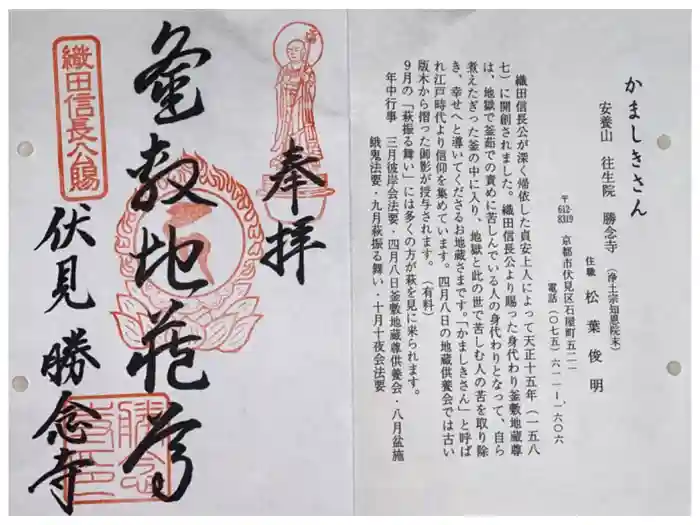 奉拝
釜敷地蔵尊
織田信長公賜
伏見 勝念寺
かましきさん
安養山 往生院 勝念寺 (浄土宗知恩院末)
住職 松葉俊明
〒612-8319 京都市伏見区石屋町五二一
電話 (〇七五) 六一一-一六〇六
織田信長公が深く帰依した貞安上人によって天正十五年(一五八
七)に開創されました。織田信長公より賜った身代わり釜敷地蔵尊
は、地獄で釜茹での責めに苦しんでいる人の身代わりとなって、自ら
煮えたぎった釜の中に入り、地獄と此の世で苦しむ人の苦を取り除
き、幸せへと導いてくださるお地蔵さまです。「かましきさん」と呼ば
れ江戸時代より信仰を集めています。四月八日の地蔵供養会では古い
版木から摺った御影が授与されます。(有料)
9月の「萩振る舞い」には多くの方が萩を見に来られます。
年中行事 三月彼岸会法要・四月八日釜敷地蔵尊供養会・八月盆施
餓鬼法要・九月萩振る舞い・十月十夜会法要